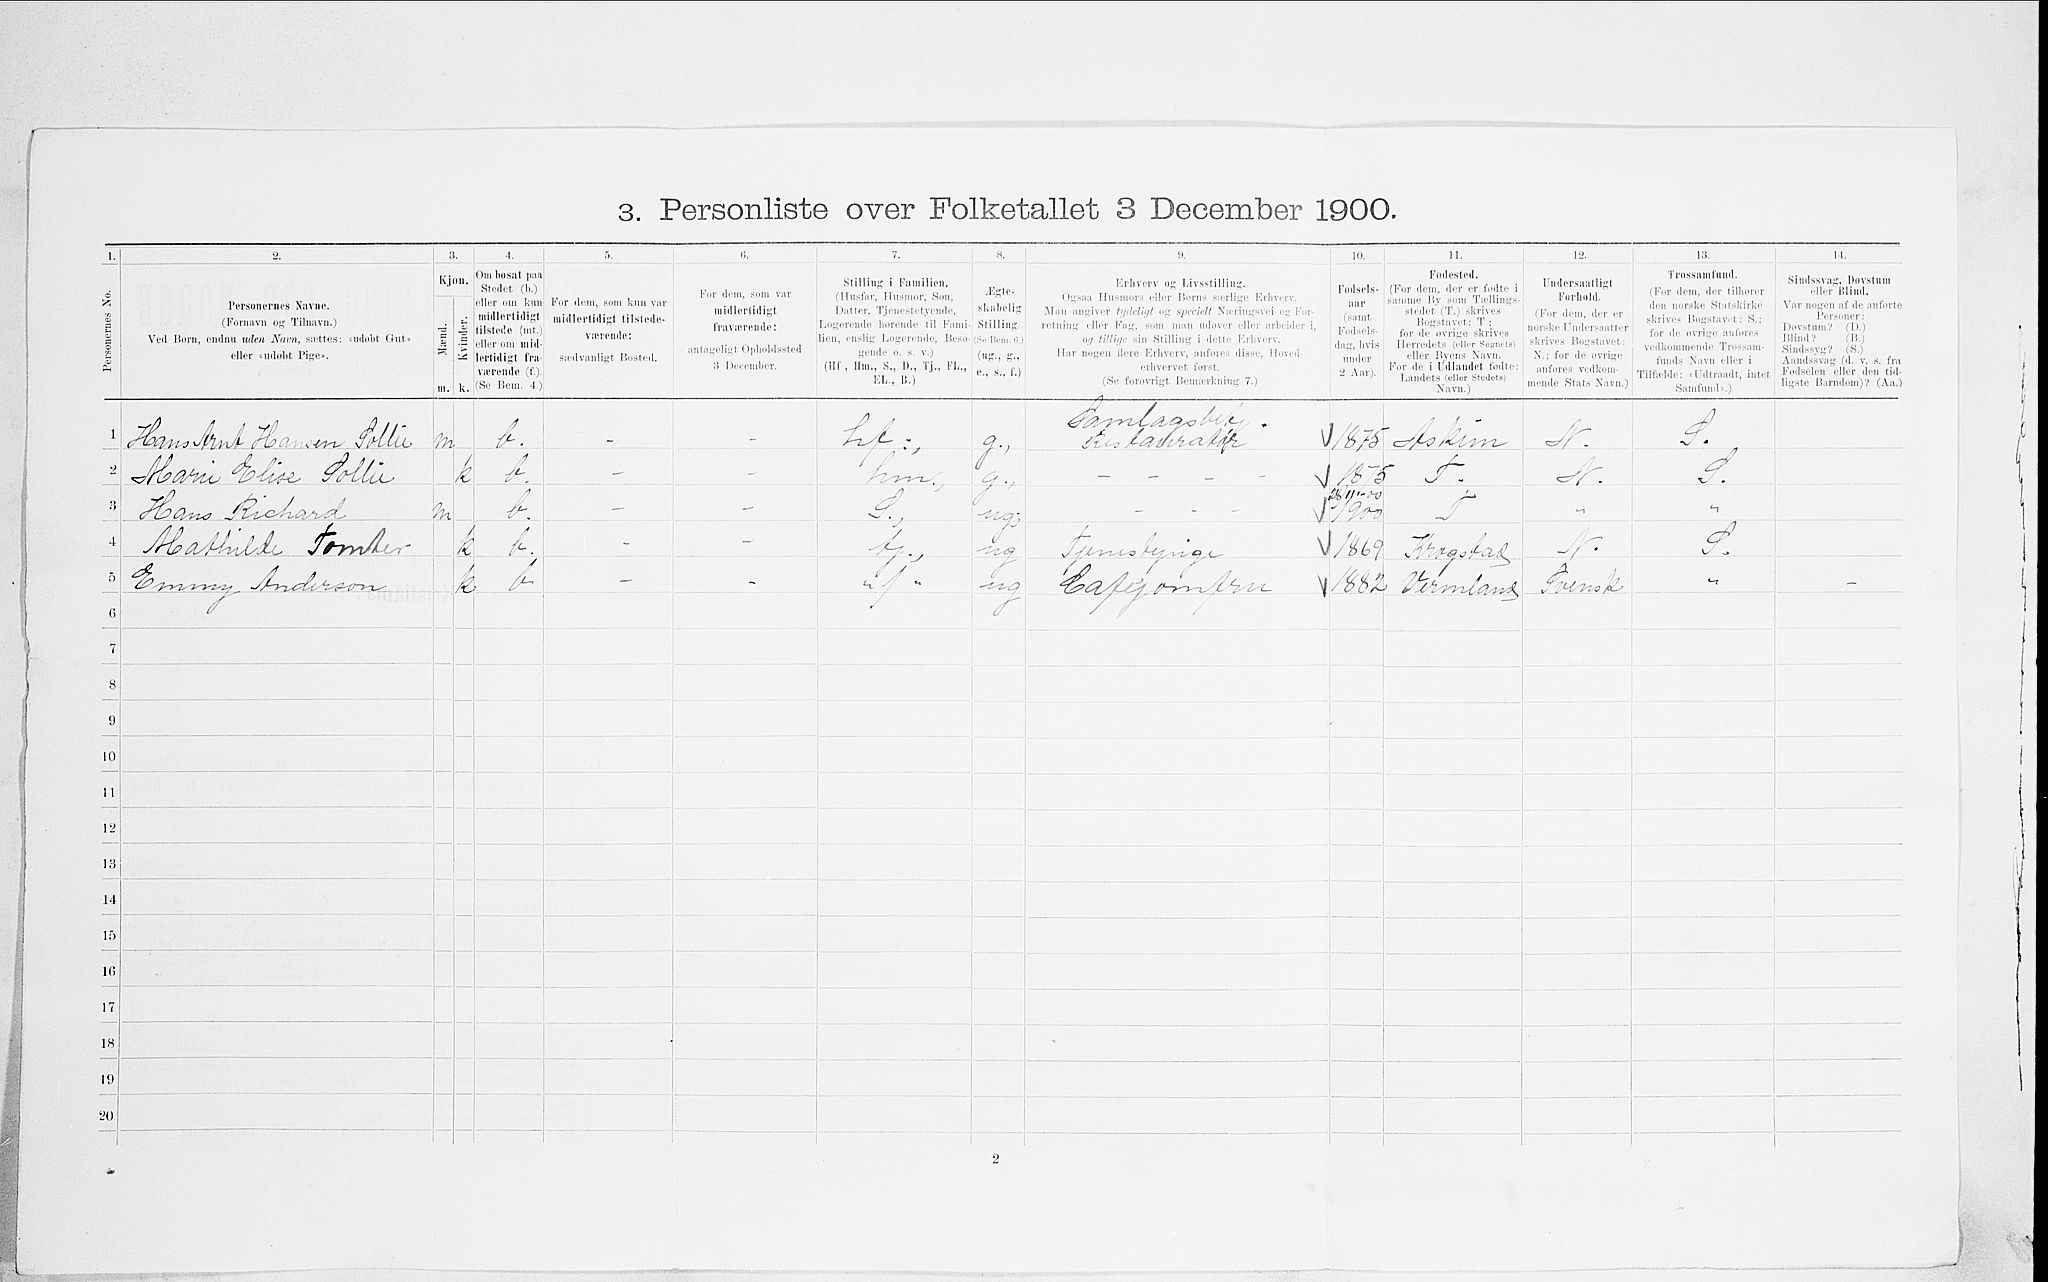 3. Personliste over Folketallet 3 December 1900.
1. 2. 3. 4. 5. 6. 7. 8. 9. 10. 11. 12. 13. 14.
Personernes No.
Personernes Navne.
(Fornavn og Tilnavn.)
Ved Børn, endnu uden Navn, sættes: «udøbt Gut»
eller «udøbt Pige».
Kjøn.
Mænd.
m.
Kvinder.
k.
Om bosat paa
Stedet (b.)
eller om kun
midlertidigt
tilstede (mt.)
eller om mid-
lertidigt fra-
værende (f.).
(Se Bem. 4.)
For dem, som kun var
midlertidigt tilstede-
værende:
sædvanligt Bosted.
For dem, som var
midlertidigt
fraværende:
antageligt Opholdssted
3 December.
Stilling i Familien.
(Husfar, Husmor, Søn,
Datter, Tjenestetyende,
Logerende hørende til Fami-
lien, enslig Logerende, Besø-
gende o. s. v.)
(Hf., Hm., S., D., Tj., FL.,
EL., B.)
Ægte-
skabelig
Stilling.
(Se Bem. 6.)
(ug., g.,
e., s., f.)
Erhverv og Livsstilling.
Ogsaa Husmors eller Børns særlige Erhverv.
Man angiver tydeligt og specielt Næringsvei og For-
retning eller Fag, som man udøver eller arbeider i,
og tillige sin Stilling i dette Erhverv.
Har nogen flere Erhverv, anføres disse, Hoved-
erhvervet først.
(Se forøvrigt Bemærkning 7.)
Fødsels-
aar
(samt
Fødsels-
dag, hvis
under
2 Aar).
Fødested.
(For dem, der er fødte i
samme By som Tællings-
stedet (T.) skrives
Bogstavet: T;
for de øvrige skrives
Herredets (eller Sognets)
eller Byens Navn.
For de i Udlandet fødte:
Landets (eller Stedets)
Navn.)
Undersaatligt
Forhold.
(For dem, der er
norske Undersaatter
skrives Bogstavet:
N.; for de øvrige
anføres vedkom-
mende Stats Navn.)
Trossamfund.
(For dem, der tilhører
den norske Statskirke
skrives Bogstavet: S.;
for de øvrige anføres
vedkommende Trossam-
funds Navn eller i
Tilfælde: «Udtraadt, intet
Samfund».)
Sindssvag, Døvstum
eller Blind.
Var nogen af de anførte
Personer:
Døvstum? (D.)
Blind? (B.)
Sindssyg? (S.)
Aandssvag (d. v. s. fra
Fødselen eller den tid-
ligste Barndom)? (Aa.)
1 Hans Arnt Hansen Sollie m b. - - hf., g., Samlagsbetj. Restauratør 1875 Askim N. S.
2 Marie Elise Sollie k b. - - hm., g., - - - - 1875 T. N. S.
3 Hans Richard m b. - - S., ug; - - - 28/11-00 1900 T " "
4 Mathilde Tomter k b. - - tj., ug Tjenestepige 1869 Krogstad N. S.
5 Emmy Anderson k b - - " / " ug Cafejomfru 1882 Vermland Svensk " -
6
7
8
9
10
11
12
13
14
15
16
17
18
19
20
2